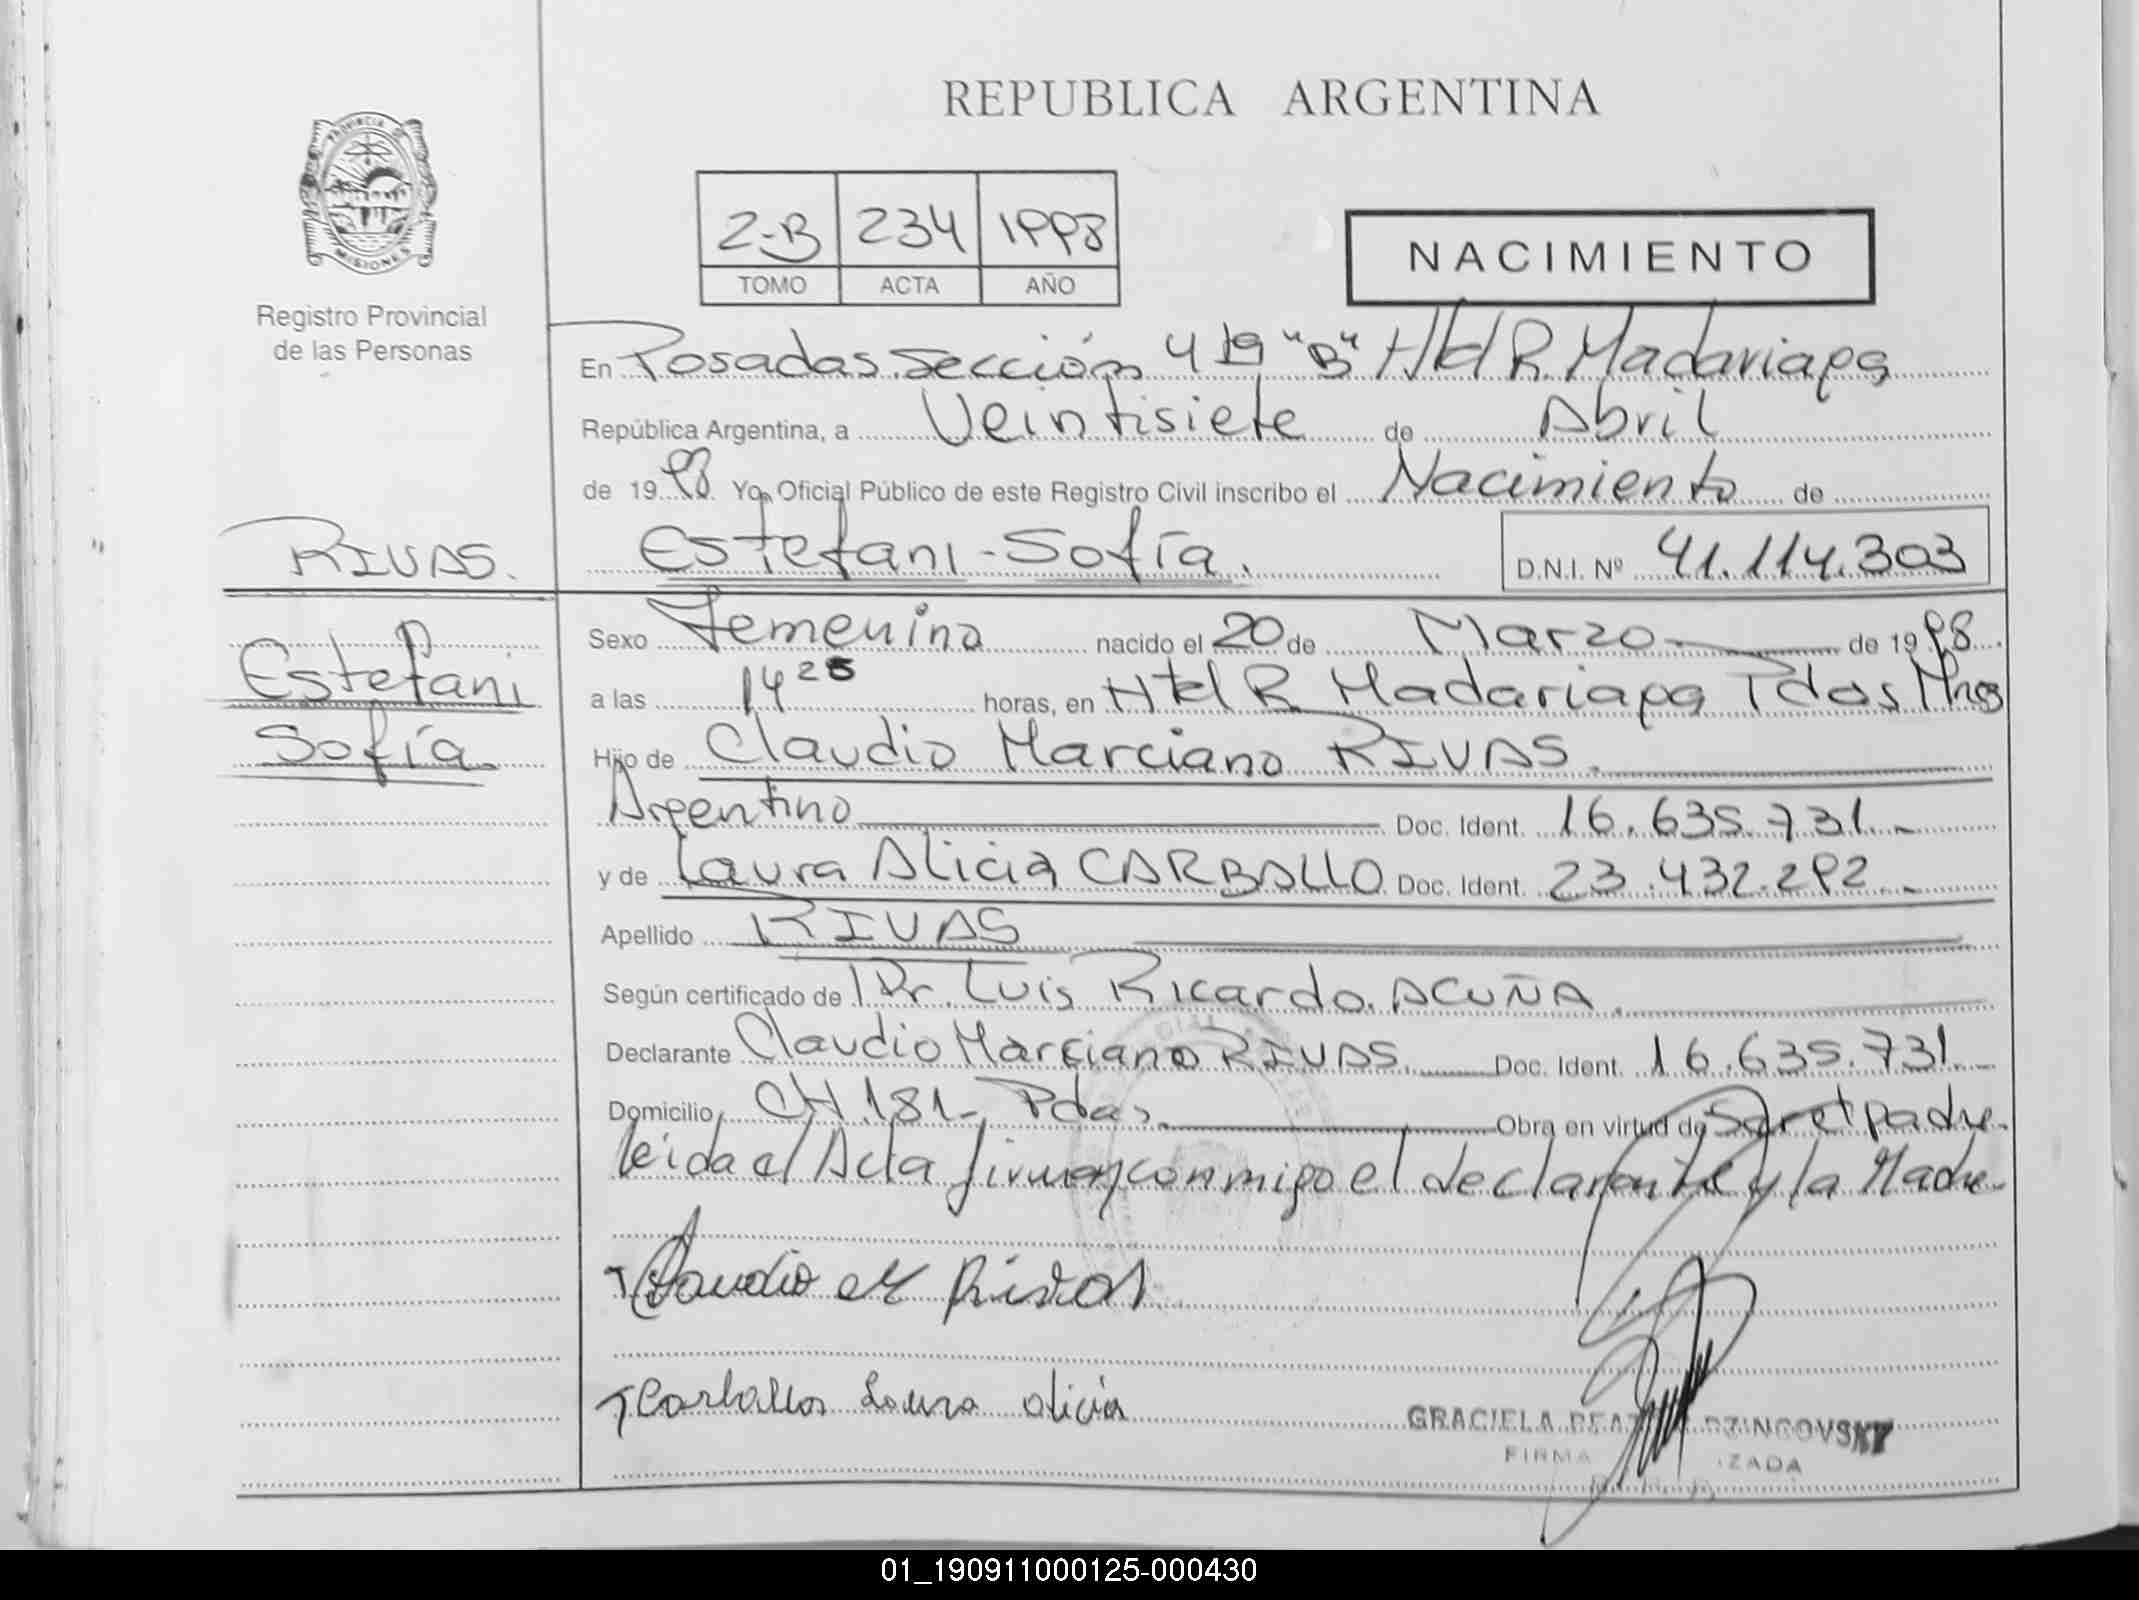 REPUBLICA ARGENTINA
PROVINCIA DE
MISIONES
Registro Provincial
de las Personas
2-B 234 1998
TOMO ACTA AÑO
NACIMIENTO
En Posadas Sección 4ta "B" Htal R. Madariaga
República Argentina, a Veintisiete de Abril
de 1998 Yo, Oficial Público de este Registro Civil inscribo el Nacimiento de
RIVAS.
Estefani-Sofía. D.N.I. Nº 41.114.303
Estefani
Sofía.
Sexo Femenino nacido el 20 de Marzo de 1998
a las 14 25 horas, en Htal R. Madariaga Pdas Mnes
Hijo de Claudio Marciano RIVAS.
Argentino Doc. Ident. 16.635.731.-
y de Laura Alicia CARBALLO Doc. Ident. 23.432.292.-
Apellido RIVAS
Según certificado de Dr. Luis Ricardo ACUÑA.
Declarante Claudio Marciano RIVAS. Doc. Ident. 16.635.731.-
Domicilio CH.181- Pdas. Obra en virtud de Ser el padre.
leída el Acta firman conmigo el declarante y la Madre.
Claudio M Rivas
Carballo Laura Alicia
GRACIELA
FIRMA
01_190911000125-000430